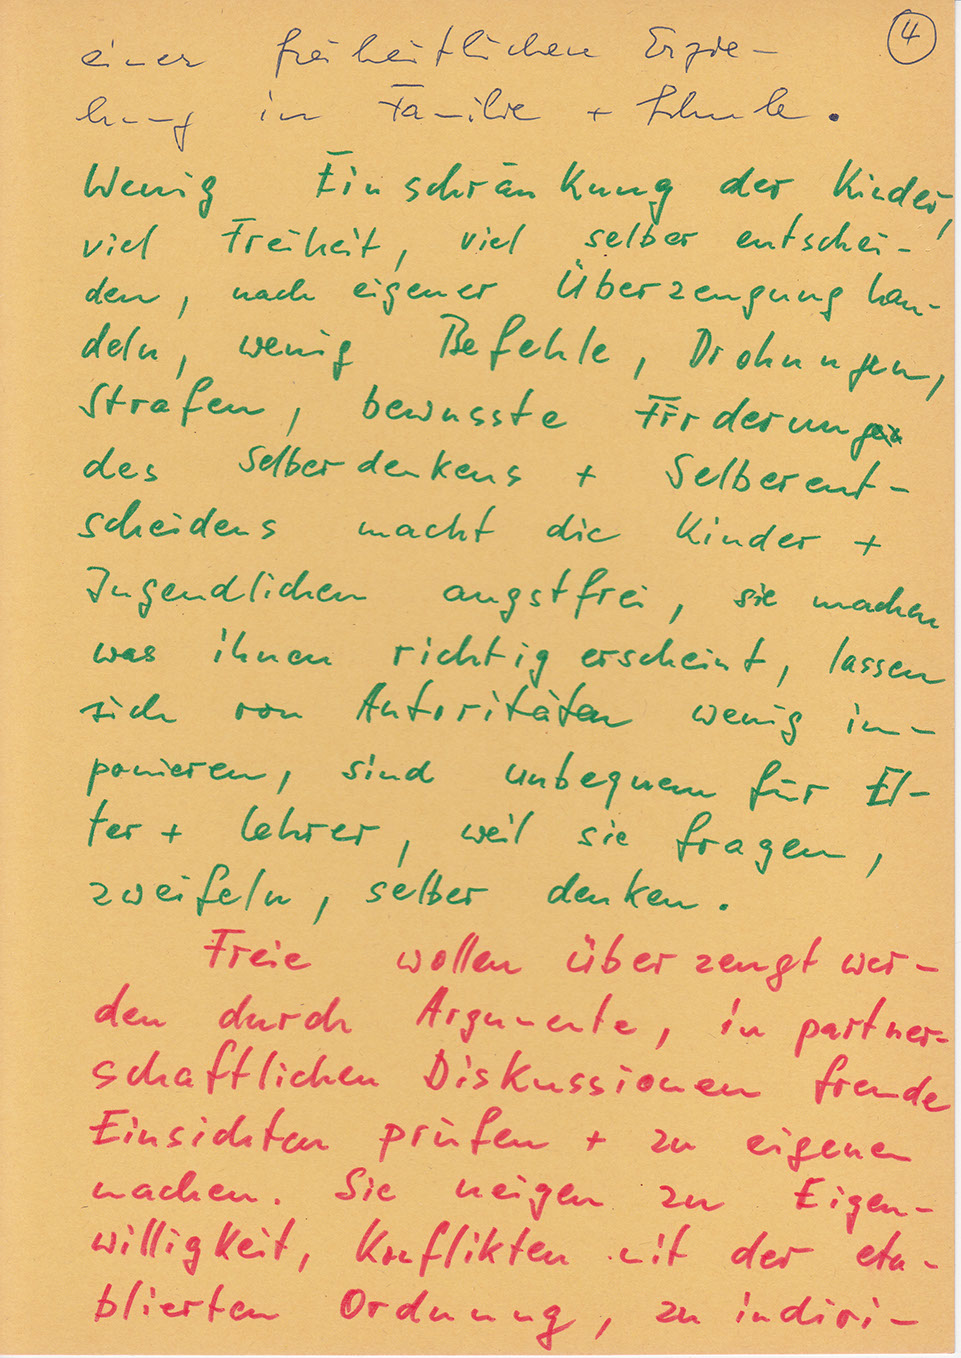 4
einer freiheitlichen Erzie-
hung in Familie + Schule.
Wenig Einschränkung der Kinder,
viel Freiheit, viel selber entschei-
den, nach eigener Überzeugung han-
deln, wenig Befehle, Drohungen,
Strafen, bewusste Förderung
des Selberdenkens + Selberent-
scheidens macht die Kinder +
Jugendlichen angstfrei, sie machen
was ihnen richtig erscheint, lassen
sich von Autoritäten wenig im-
ponieren, sind unbequem für El-
ter + Lehrer, weil sie fragen,
zweifeln, selber denken.
Freie wollen überzeugt wer-
den durch Argumente, in partner-
schaftlichen Diskussionen fremde
Einsichten prüfen + zu eigenen
machen. Sie neigen zu Eigen-
willigkeit, Konflikten mit der eta-
blierten Ordnung, zu indivi-